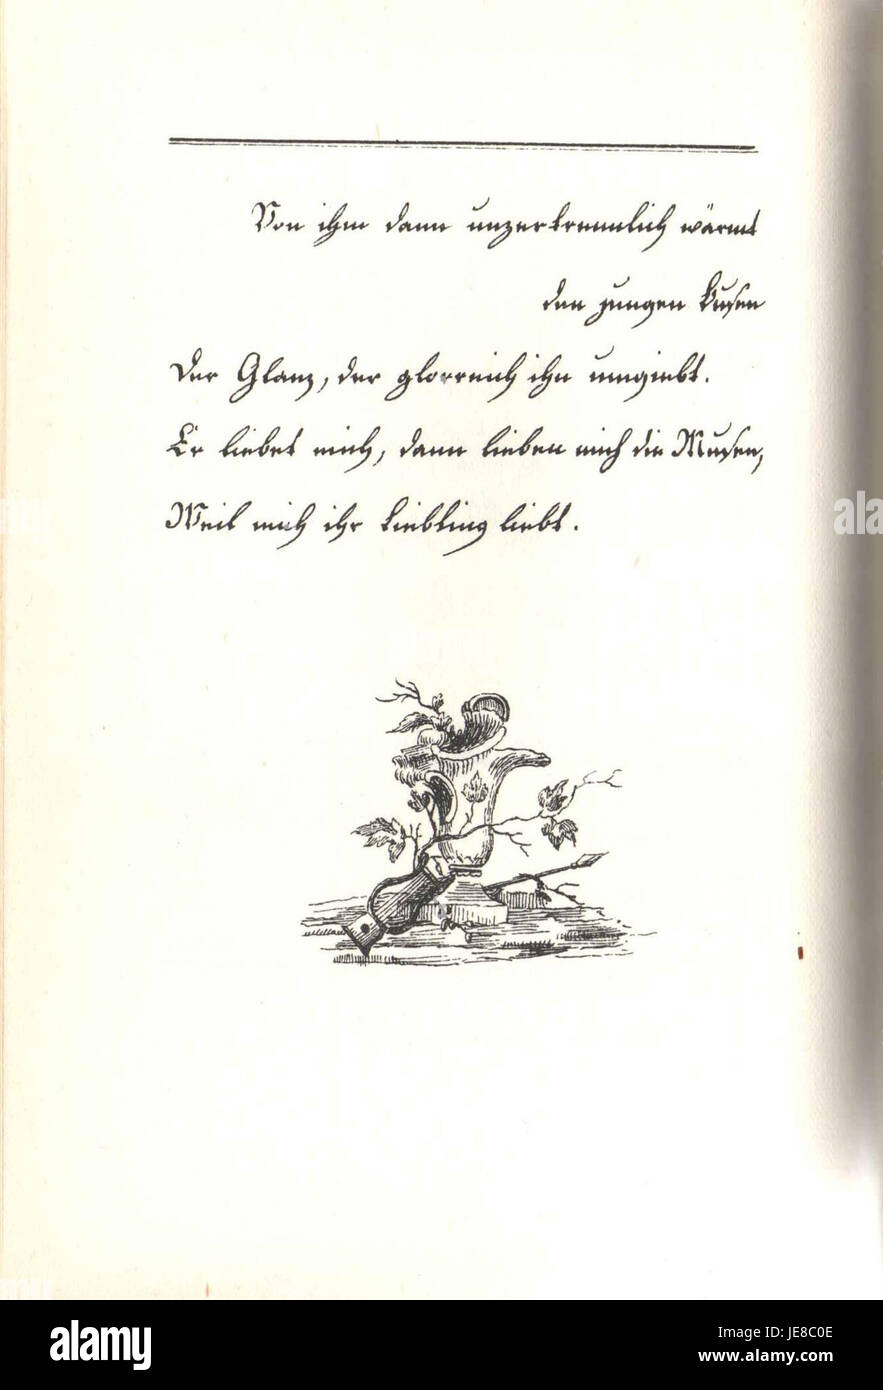 Von ihm dann unzertrennlich wärmt
den jungen Busen
Der Glanz, der glorreich ihn umgiebt.
Er liebet mich, dann lieben mich die Musen,
Weil mich ihr Liebling liebt.
alamy
Image ID: JE8C0E
www.alamy.com